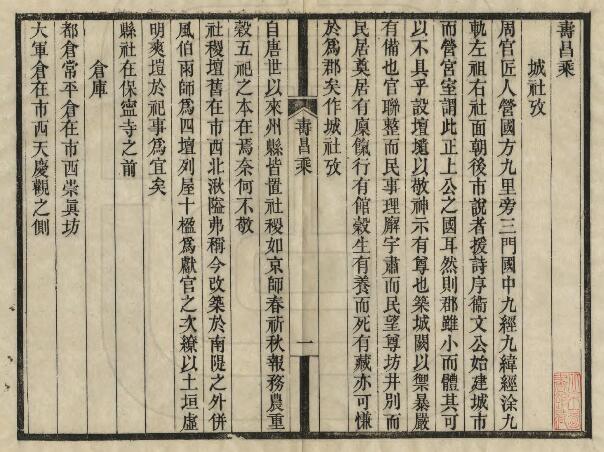 壽昌乘
城社攷
周官匠人營國方九里旁三門國中九經九緯經涂九
軌左祖右社面朝後市說者援詩序衞文公始建城市
而營宮室謂此正上公之國耳然則郡雖小而體其可
以不具乎設壇壝以敬神示有尊也築城闕以禦暴嚴
有備也官聯整而民事理廨宇肅而民望尊坊井別而
民居奠居有廩餼行有館穀生有養而死有藏亦可慊
於爲郡矣作城社攷
壽昌乘
一
自唐世以來州縣皆置社稷如京師春祈秋報務農重
穀五祀之本在焉奈何不敬
社稷壇舊在市西北湫隘弗稱今改築於南隄之外併
風伯雨師爲四壇列屋十楹爲獻官之次繚以土垣虛
明爽塏於祀事爲宜矣
縣社在保寧寺之前
倉庫
都倉常平倉在市西崇眞坊
大軍倉在市西天慶觀之側